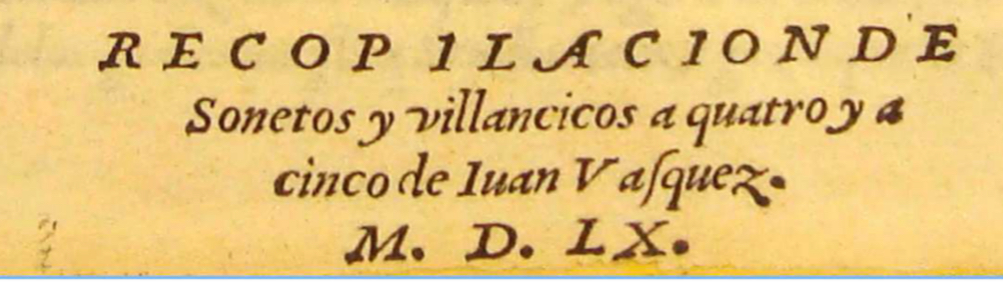 RECOPILACION DE
Sonetos y villancicos a quatro y a
cinco de Iuan Vasquez.
M. D. LX.